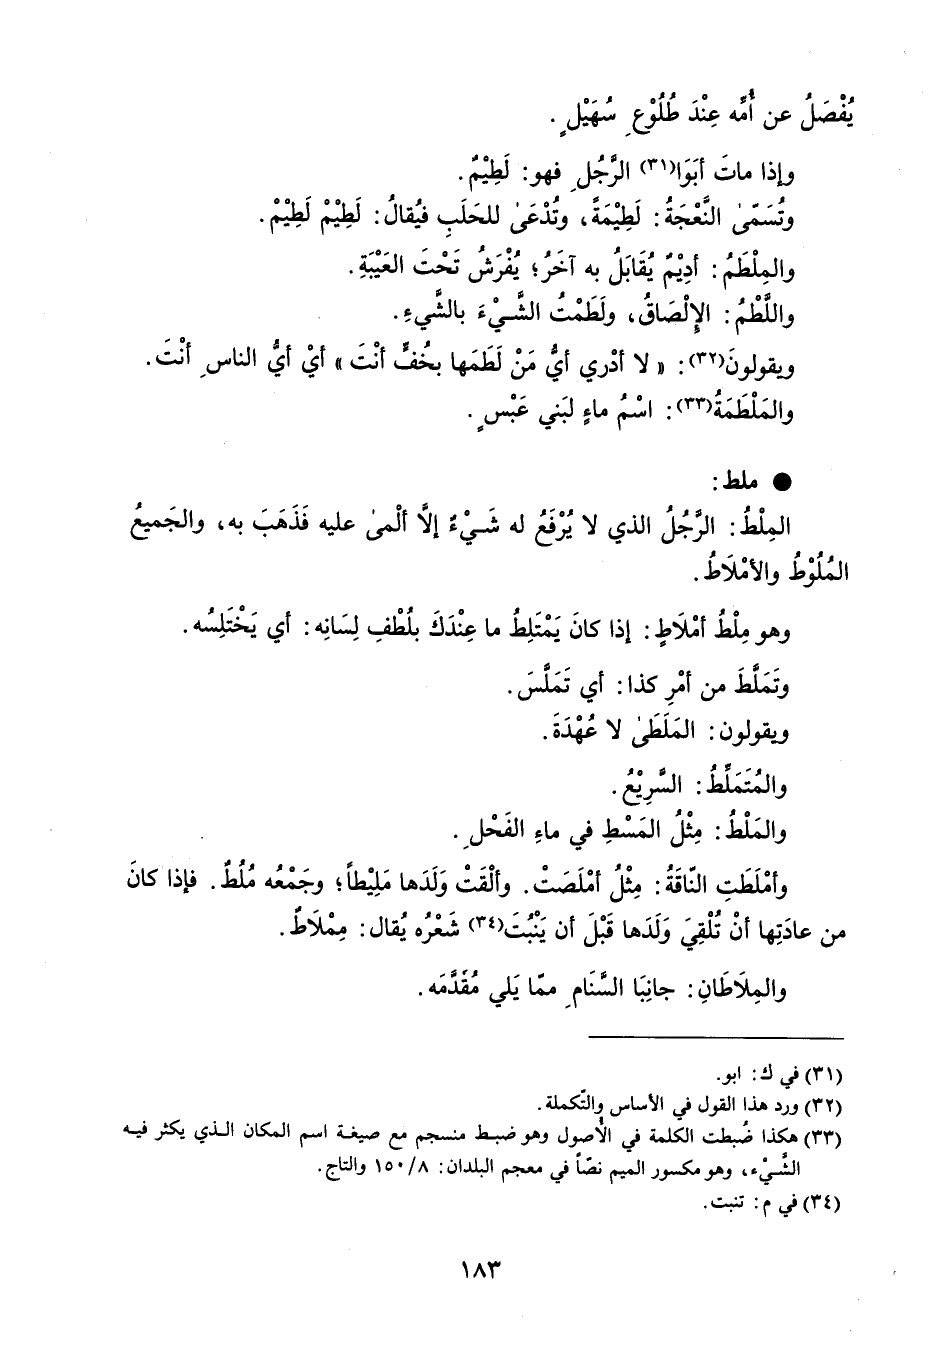 يُفْصَلُ عن أُمِّه عِنْدَ طُلُوْعِ سُهَيْلٍ.
وإذا ماتَ أبَوَا(٣١) الرَّجُلِ فهو: لَطِيْمٌ.
وتُسَمّىٰ النَّعْجَةُ: لَطِيْمَةً، وتُدْعَىٰ للحَلَبِ فيُقالُ: لَطِيْمْ لَطِيْمْ.
والمِلْطَمُ: أدِيْمٌ يُقَابَلُ به آخَرُ؛ يُفْرَشُ تَحْتَ العَيْبَةِ.
واللَّطْمُ: الإِلْصَاقُ، ولَطَمْتُ الشَّيْءَ بالشَّيءِ.
ويقولونَ(٣٢): « لا أدْري أيُّ مَنْ لَطَمَها بخُفٍّ أنْتَ » أيْ أيُّ الناسِ أنْتَ.
والمَلْطَمَةُ(٣٣): اسْمُ ماءٍ لبَني عَبْسٍ.
● ملط:
المِلْطُ: الرَّجُلُ الذي لا يُرْفَعُ له شَيْءٌ إلَّا ألْمىٰ عليه فَذَهَبَ به، والجَميعُ
المُلُوْطُ والأمْلَاطُ.
وهو مِلْطُ أمْلَاطٍ: إذا كانَ يَمْتَلِطُ ما عِنْدَكَ بلُطْفِ لِسَانِه: أي يَخْتَلِسُه.
وتَمَلَّطَ من أمْرِ كذا: أي تَمَلَّسَ.
ويقولون: المَلَطَىٰ لا عُهْدَةَ.
والمُتَمَلِّطُ: السَّرِيْعُ.
والمَلْطُ: مِثْلُ المَسْطِ في ماءِ الفَحْلِ.
وأمْلَطَتِ النّاقَةُ: مِثْلُ أمْلَصَتْ. وألْقَتْ وَلَدَها مَلِيْطاً؛ وجَمْعُه مُلُطٌ. فإذا كانَ
من عادَتِها أنْ تُلْقِيَ وَلَدَها قَبْلَ أن يَنْبُتَ(٣٤) شَعْرُه يُقال: مِمْلَاطٌ.
والمِلَاطَانِ: جانِبَا السَّنَامِ ممّا يَلي مُقَدَّمَه.
(٣١) في ك: ابو.
(٣٢) ورد هذا القول في الأساس والتّكملة.
(٣٣) هكذا ضُبطت الكلمة في الأُصول وهو ضبط منسجم مع صيغة اسم المكان الذي يكثر فيه
الشَّيْء، وهو مكسور الميم نصّاً في معجم البلدان: ٨/ ١٥٠ والتاج.
(٣٤) في م: تنبت.
١٨٣